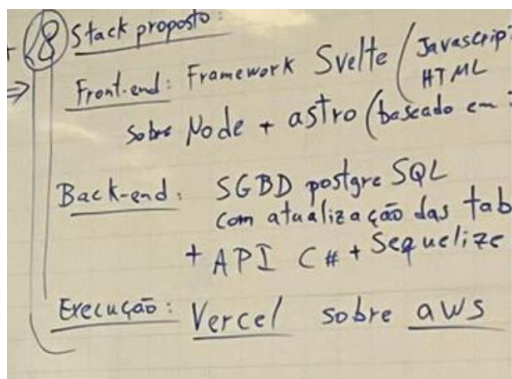 8 Stack proposto:
Front-end: Framework Svelte (Javascript
HTML
sobre Node + astro (baseado em
Back-end: SGBD postgre SQL
com atualização das tab
+ API C# + Sequelize
Execução: Vercel sobre aws